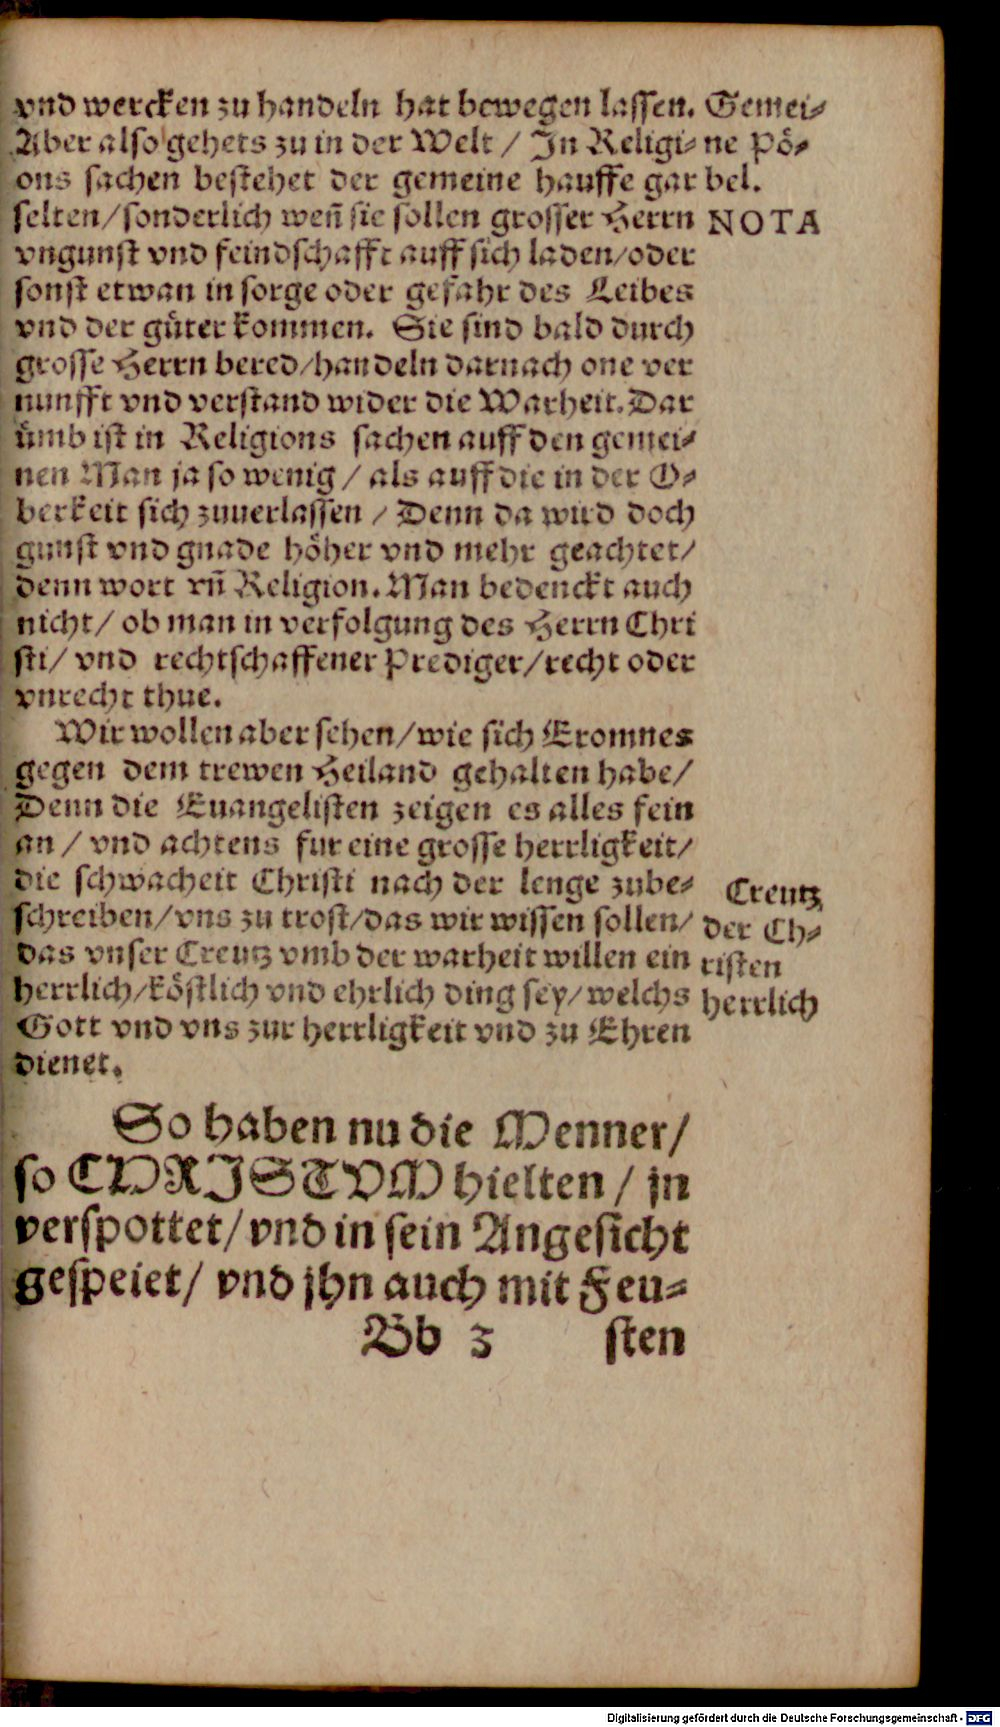 vnd wercken zu handeln hat bewegen lassen.
Aber also gehets zu in der Welt / In Religi-
ons sachen bestehet der gemeine hauffe gar
selten/sonderlich weñ sie sollen grosser Herrn
vngunst vnd feindschafft auff sich laden/oder
sonst etwan in sorge oder gefahr des Leibes
vnd der güter kommen. Sie sind bald durch
grosse Herrn bered/handeln darnach one ver
nunfft vnd verstand wider die Warheit. Dar
ümb ist in Religions sachen auff den gemei-
nen Man ja so wenig / als auff die in der O-
berkeit sich zuuerlassen / Denn da wird doch
gunst vnd gnade höher vnd mehr geachtet/
denn wort vñ Religion. Man bedenckt auch
nicht/ ob man in verfolgung des Herrn Chri
sti/ vnd rechtschaffener Prediger/recht oder
vnrecht thue.
Gemei-
ne Pö-
bel.
NOTA
Wir wollen aber sehen/wie sich Eromnes
gegen dem trewen Heiland gehalten habe/
Denn die Euangelisten zeigen es alles fein
an / vnd achtens fur eine grosse herrligkeit/
die schwacheit Christi nach der lenge zube-
schreiben/vns zu trost/das wir wissen sollen/
das vnser Creutz vmb der warheit willen ein
herrlich/köstlich vnd ehrlich ding sey/welchs
Gott vnd vns zur herrligkeit vnd zu Ehren
dienet.
Creutz
der Ch-
risten
herrlich
So haben nu die Menner/
so CHRISTVM hielten / jn
verspottet/ vnd in sein Angesicht
gespeiet/ vnd jhn auch mit Feu-
Bb 3 sten
Digitalisierung gefördert durch die Deutsche Forschungsgemeinschaft - DFG